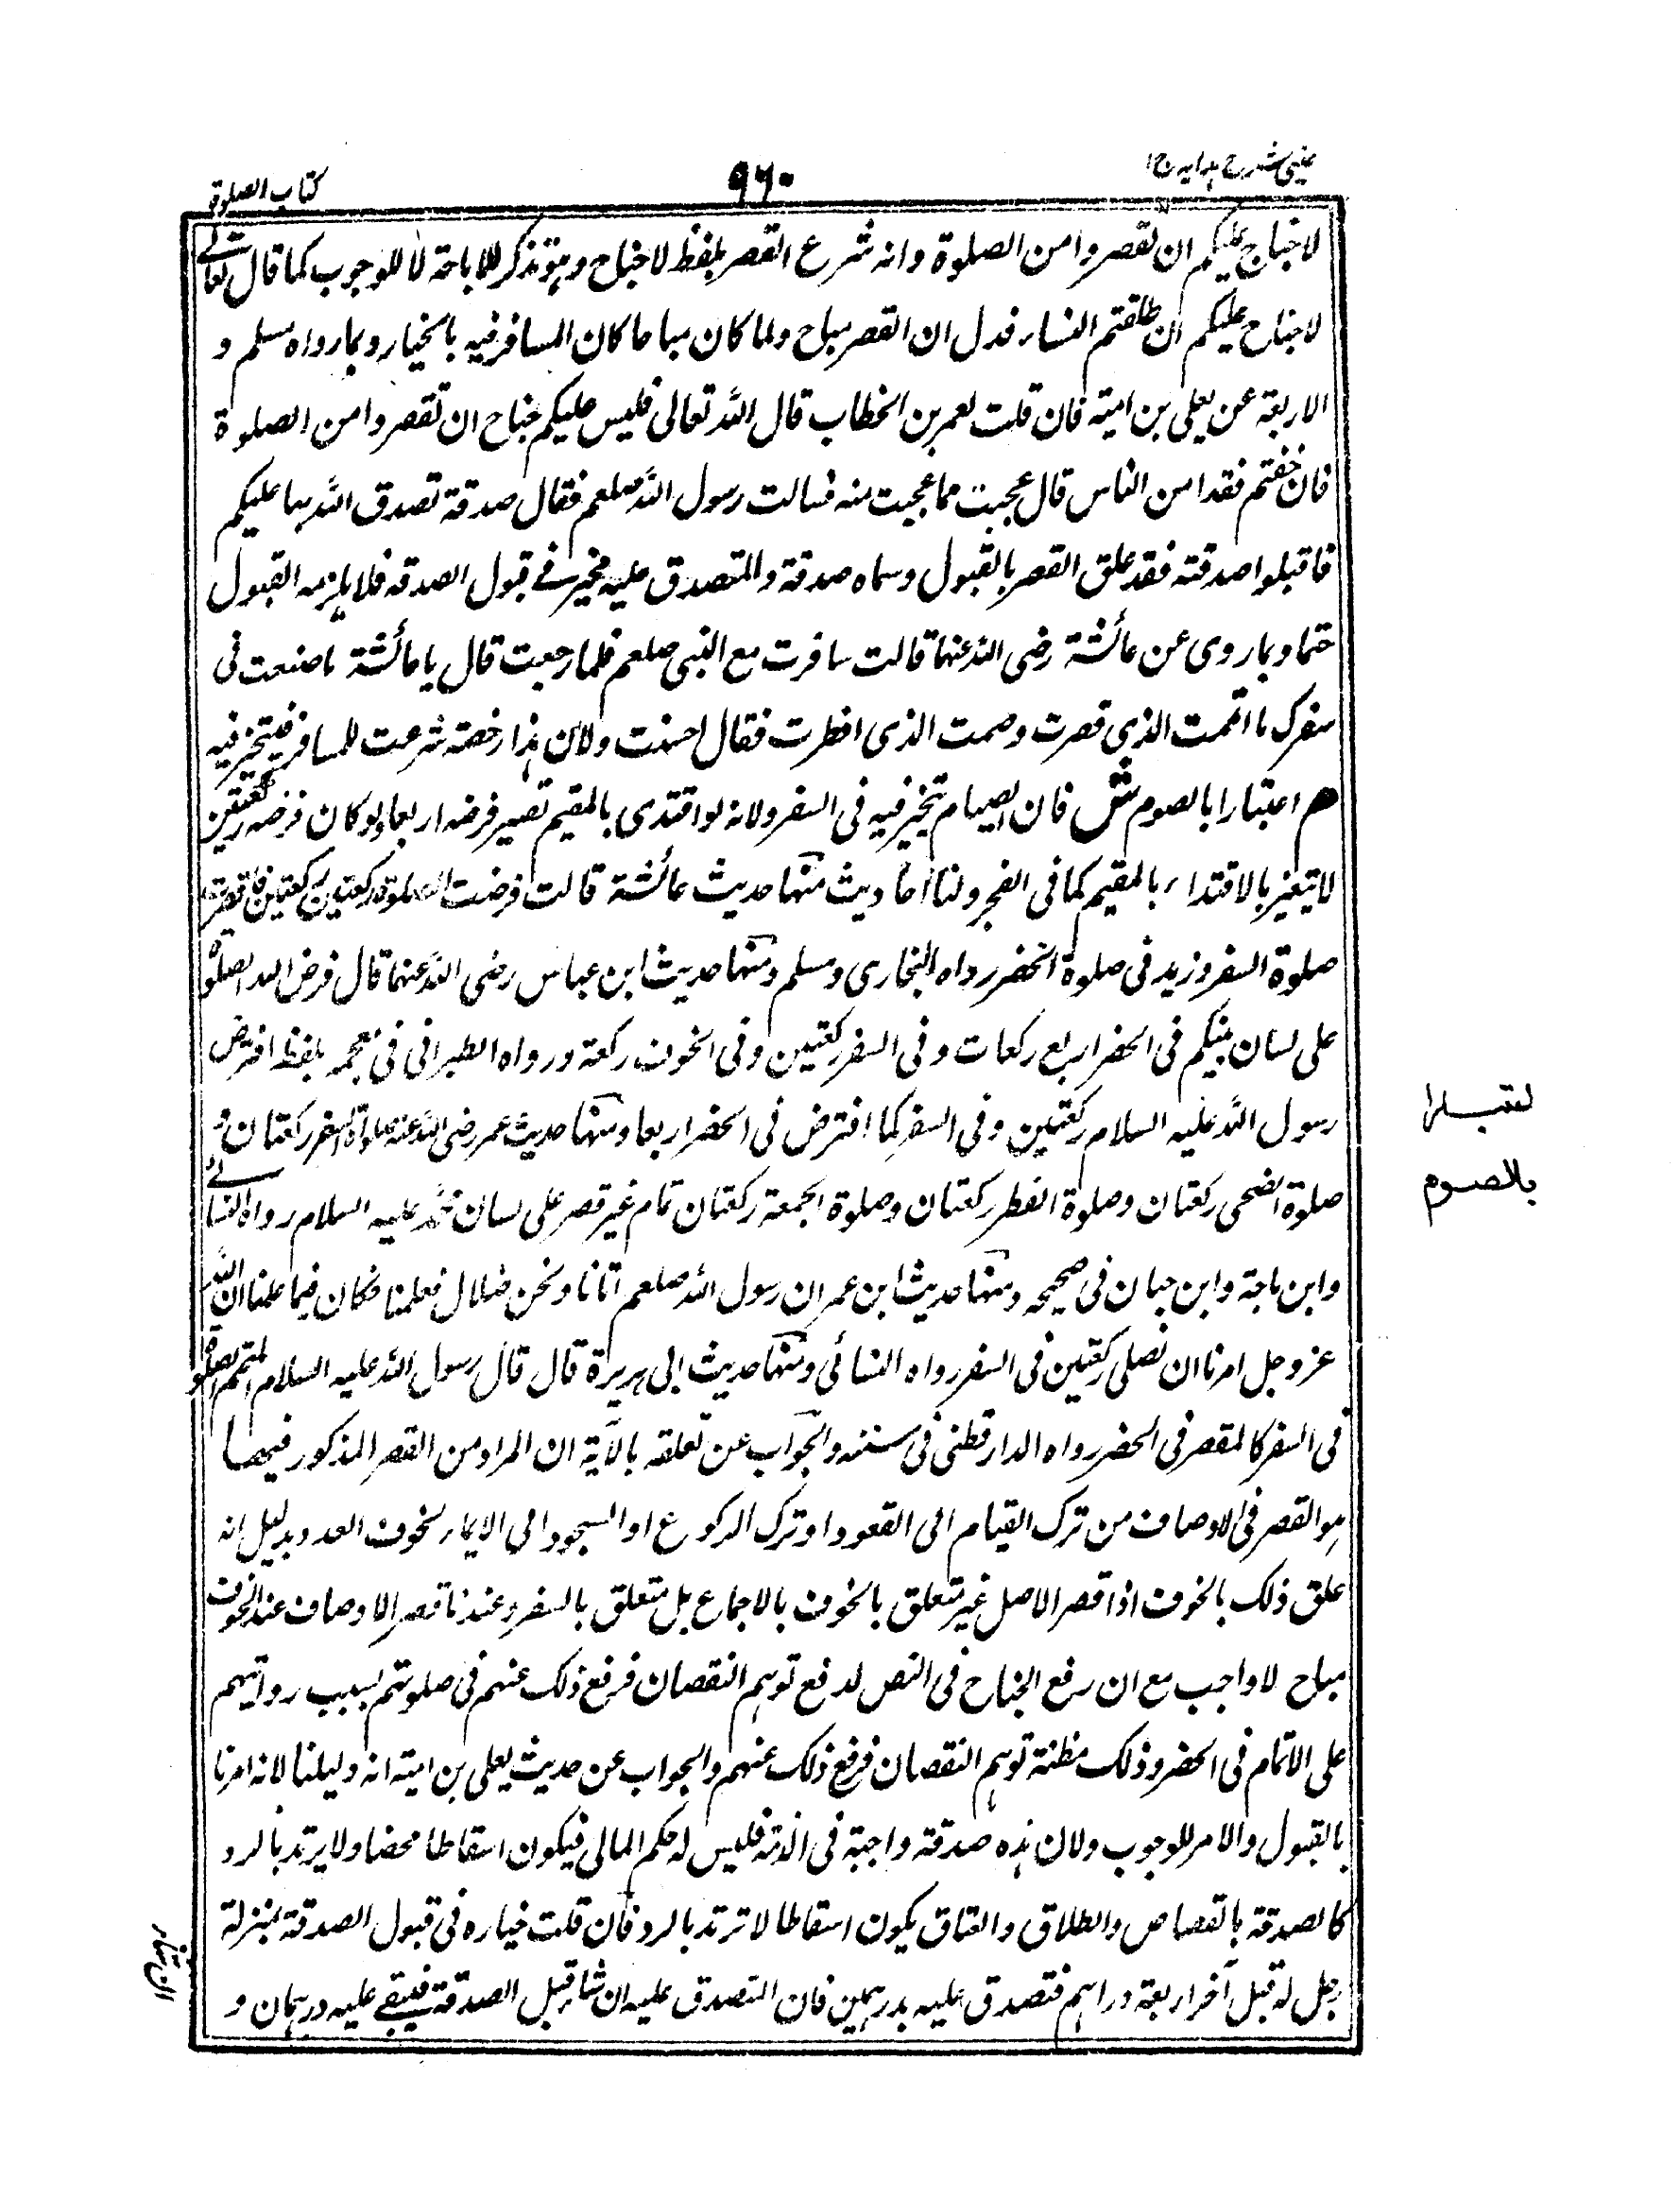 عینی شرح ہدایہ ج ۱
۹۶۰
کتاب الصلوۃ
لا جناح علیکم ان تقصروا من الصلوة وانه شرع القصر بلفظ لا جناح و ہو تذکر للاباحة لا للوجوب کما قال تعالے
لا جناح علیکم ان طلقتم النساء فدل ان القصر مباح ولما کان مباحا کان المسافر فیه بالخیار وبما رواه مسلم و
الاربعة عن یعلی بن امیة فان قلت لعمر بن الخطاب قال الله تعالی فلیس علیکم جناح ان تقصروا من الصلوة
فان خفتم فقد امن الناس قال عجبت مما عجبت منه فسالت رسول الله صلعم فقال صدقة تصدق الله بہا علیکم
فاقبلوا صدقته فقد علق القصر بالقبول وسماه صدقة والمتصدق علیه مخیر فے قبول الصدقه فلا یلزمه القبول
حتما وبما روی عن عائشة رضی الله عنہا قالت سافرت مع النبی صلعم فلما رجعت قال یا عائشة ماصنعت فی
سفرک ما اتممت الذی قصرت وصمت الذی افطرت فقال احسنت ولان ہذا رخصة شرعت للمسافر فیتخیر فیه
ھم اعتبارا بالصوم ش فان الصیام یخیر فیه فی السفر ولانه لو اقتدی بالمقیم تصیر فرضه اربعا ولو کان فرضه رکعتین
لا یتغیر بالاقتداء بالمقیم کما فی الفجر ولنا احادیث منہا حدیث عائشة قالت فرضت الصلوة رکعتین رکعتین فاقرت
صلوة السفر وزید فی صلوة الحضر رواه البخاری ومسلم ومنہا حدیث ابن عباس رضی الله عنہما قال فرض الله الصلوة
علی لسان نبیکم فی الحضر اربع رکعات وفی السفر رکعتین وفی الخوف رکعة ورواه الطبرانی فی معجمه بلفظ افترض
رسول الله علیه السلام رکعتین وفی السفر کما افترض فی الحضر اربعا ومنہا حدیث عمر رضی الله عنه صلوة السفر رکعتان و
صلوة الضحی رکعتان وصلوة الفطر رکعتان وصلوة الجمعة رکعتان تمام غیر قصر علی لسان محمد علیه السلام رواه النسائے
وابن ماجة وابن حبان فی صحیحه ومنہا حدیث ابن عمر ان رسول الله صلعم اتانا ونحن ضلال فعلمنا فکان فیما علمنا ان الله
عز وجل امرنا ان نصلی رکعتین فی السفر رواه النسائی ومنہا حدیث ابی ہریرة قال قال رسول الله علیه السلام المتم الصلوة
فی السفر کالمقصر فی الحضر رواه الدارقطنی فی سننه والجواب عن تعلقه بالآیة ان المراد من القصر المذکور فیھا
ہو القصر فی الاوصاف من ترک القیام الی القعود او ترک الرکوع او السجود الی الایماء لخوف العدو بدلیل انه
علق ذلک بالخوف اذا قصر الاصل غیر متعلق بالخوف بالاجماع بل متعلق بالسفر وعندنا قصر الاوصاف عند الخوف
مباح لا واجب مع ان رفع الجناح فی النص لدفع توہم النقصان فرفع ذلک عنہم فی صلوتہم بسبب
علی الاتمام فی الحضر وذلک مظنة توہم النقصان فرفع ذلک عنہم والجواب عن حدیث یعلی بن امیة انه دلیلنا لانه امرنا
بالقبول والامر للوجوب ولان ہذه صدقة واجبة فی الذمة فلیس له حکم المالی فیکون اسقاطا محضا ولا یرتد بالرد
کالصدقة بالقصاص والطلاق والعتاق یکون اسقاطا لا ترتد بالرد فان قلت خیاره فی قبول الصدقة بمنزلة
رجل له قبل آخر اربعة دراہم فتصدق علیه بدرہمین فان المتصدق علیه ان شاء قبل الصدقة فیبقے علیه درہمان و
بالصوم
ان شاء